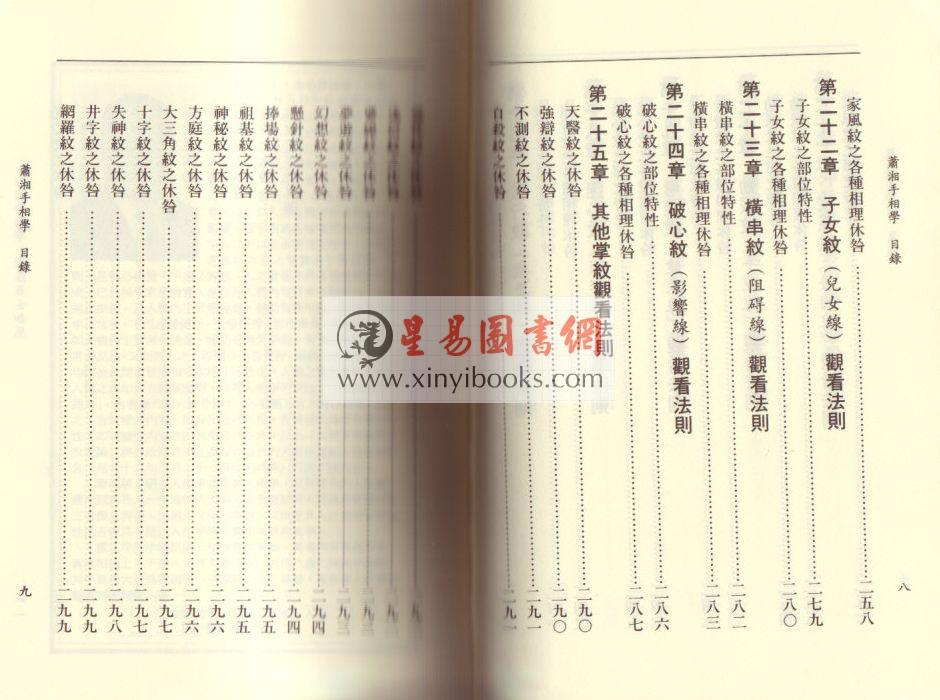 蕭湘手相學 目錄
八
家風紋之各種相理休咎 二五八
第二十二章 子女紋(兒女線)觀看法則
子女紋之部位特性 二七九
子女紋之各種相理休咎 二八〇
第二十三章 橫串紋(阻碍線)觀看法則
橫串紋之部位特性 二八二
橫串紋之各種相理休咎 二八三
第二十四章 破心紋(影響線)觀看法則
破心紋之部位特性 二八六
破心紋之各種相理休咎 二八七
第二十五章 其他掌紋觀看法則
天醫紋之休咎 二九〇
強辯紋之休咎 二九〇
不測紋之休咎 二九一
自殺紋之休咎 二九一
幻想紋之休咎 二九四
懸針紋之休咎 二九四
捧場紋之休咎 二九五
祖基紋之休咎 二九五
神秘紋之休咎 二九六
方庭紋之休咎 二九六
大三角紋之休咎 二九七
十字紋之休咎 二九七
失神紋之休咎 二九八
井字紋之休咎 二九九
網羅紋之休咎 二九九
蕭湘手相學 目錄
九
星易圖書網
www.xinyibooks.com